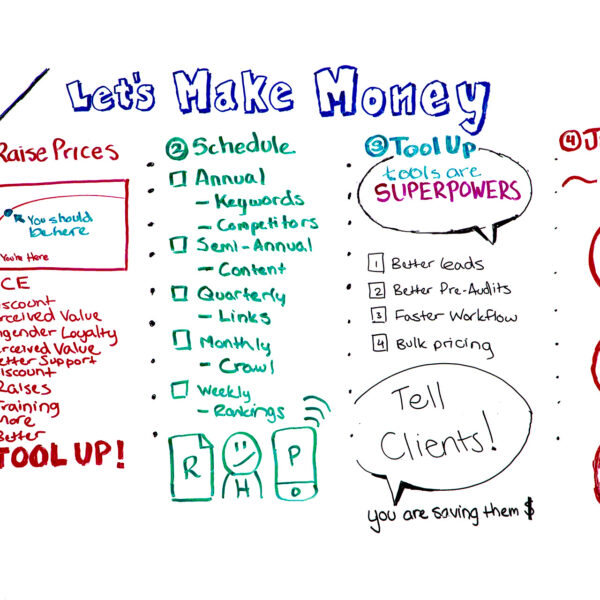 Let's Make Money
Raise Prices
You should
be here
You're Here
CE
iscount
rceived Value
ngender Loyalty
erceived Value
etter Support
iscount
Raises
Training
more
Better
TOOL UP!
2 Schedule
Annual
- Keywords
- Competitors
Semi-Annual
- Content
Quarterly
- Links
Monthly
- Crawl
Weekly
- Rankings
R
H
P
3 Tool Up
tools are
SUPERPOWERS
1 Better leads
2 Better Pre-Audits
3 Faster Workflow
4 Bulk pricing
Tell
Clients!
you are saving them $
4 J